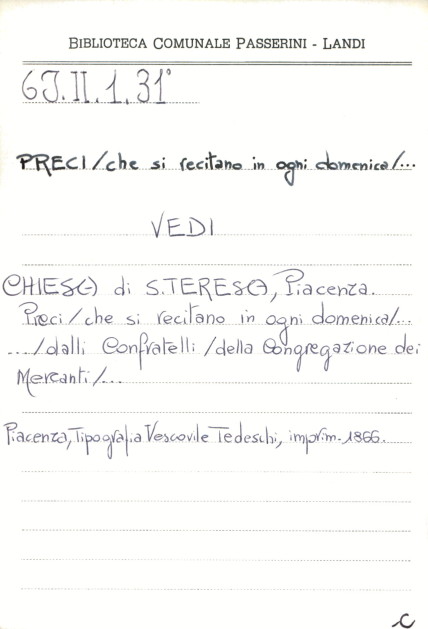 BIBLIOTECA COMUNALE PASSERINI - LANDI
6J.II.1.31°
PRECI/che si recitano in ogni domenica/...
VEDI
CHIESA di S.TERESA, Piacenza.
Preci/che si recitano in ogni domenica/...
.../dalli Confratelli/della Congregazione dei
Mercanti/...
Piacenza, Tipografia Vescovile Tedeschi, imprim. 1866.
C